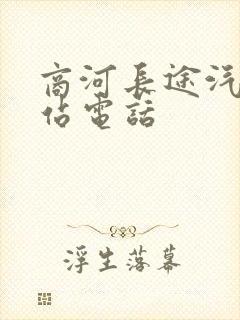 商河長途汽
佔電話
浮生落幕